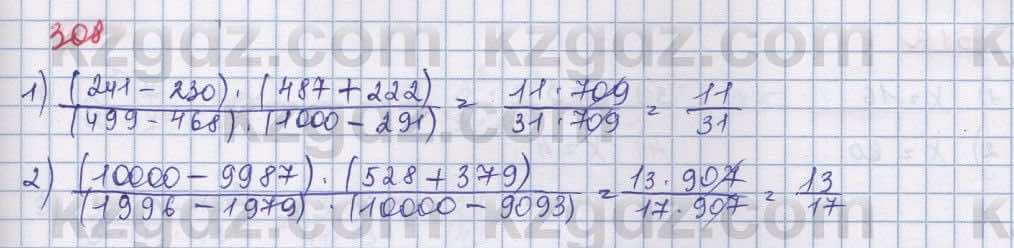 308
1) (241 - 230) · (487 + 222) / (499 - 468) · (1000 - 291) = 11 · 709 / 31 · 709 = 11 / 31
2) (10000 - 9987) · (528 + 379) / (1996 - 1979) · (10000 - 9093) = 13 · 907 / 17 · 907 = 13 / 17
kzgdz.com